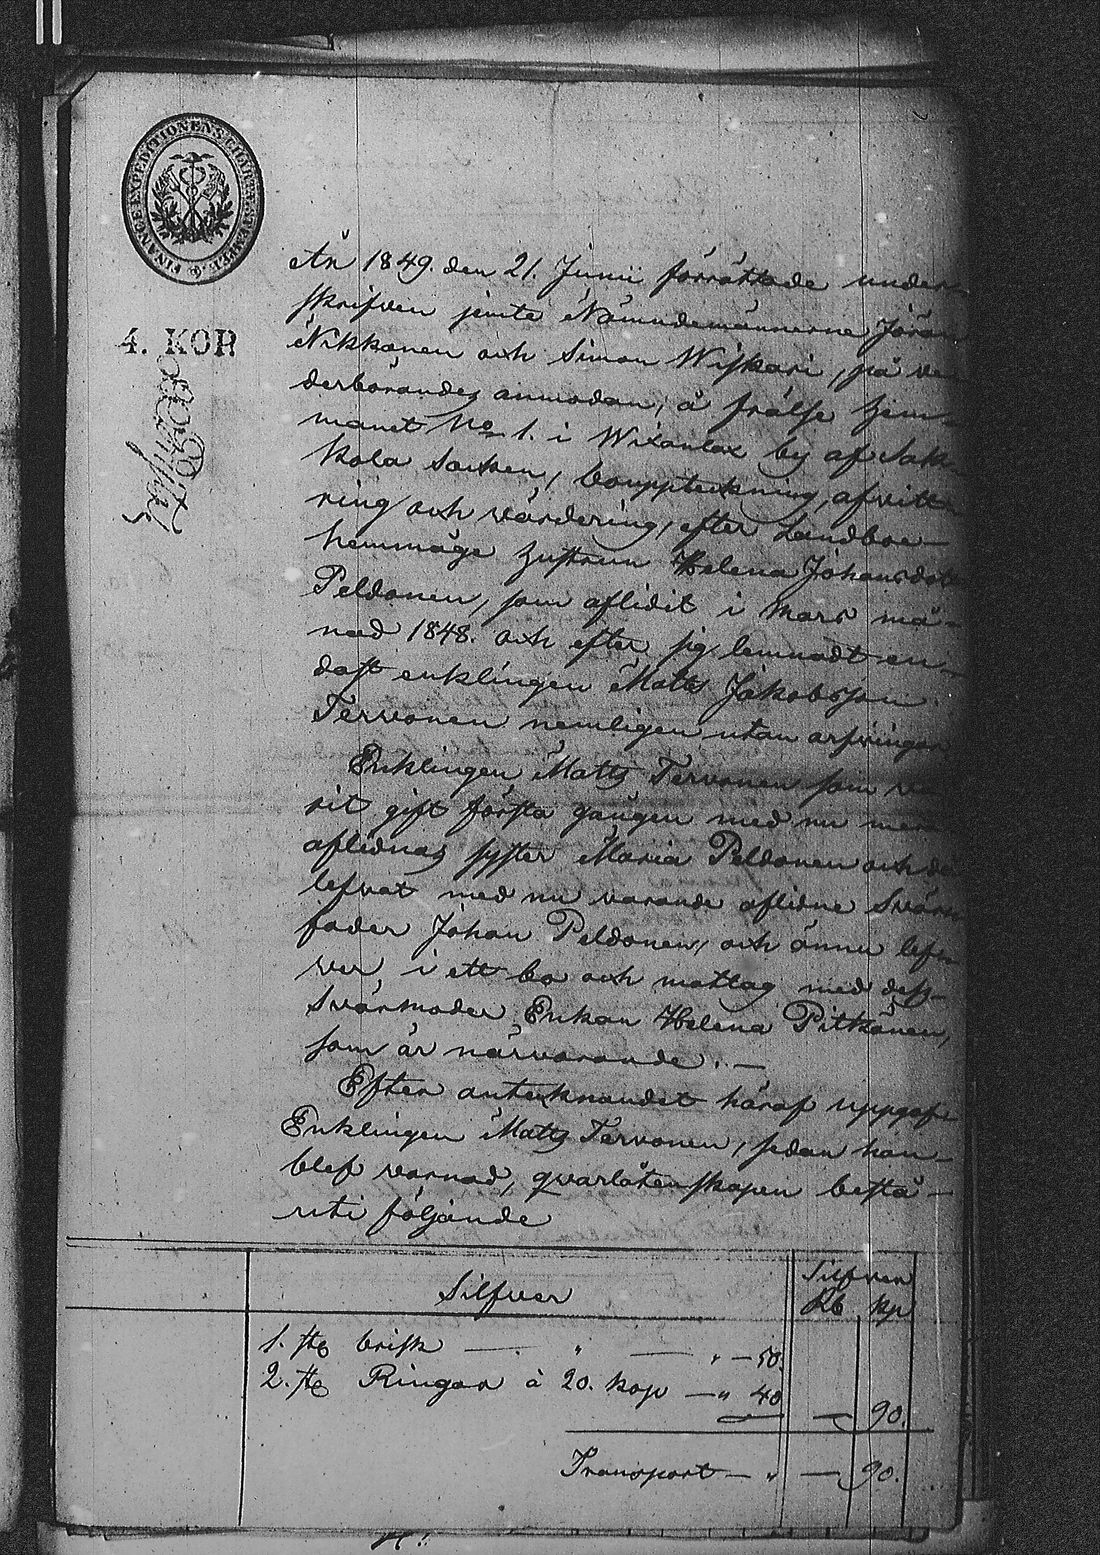 FINANCE EXPEDITIONENS CHARTÆ STEMPEL.
4. KOP
År 1849. den 21. Junii förrättade under-
skrifven jemte Nämndemännerne Jöran
Nikkanen och Simon Wiskari, på ve-
derbörandes anmodan, å frälse hem-
manet No 1. i Wixanlax by af Sak-
kola socken, bouppteckning, afvitt-
ring och värdering, efter Landboe-
hemmäge hustrun Helena Johansdotter
Peldonen, som aflidit i Mars må-
nad 1848. och efter sig lemnadt en-
dast enklingen Matts Jakobsson
Tervonen nemligen utan arfvingar
Enklingen Matts Tervonen som va-
rit gift första gången med nu mera
aflidnas syster Maria Peldonen och då
lefvat med nu varande aflidne Svär-
fader Johan Peldonen, och ännu lef-
ver i ett bo och matlag med dess
Svärmoder Enkan Helena Pitkänen,
som är närvarande. —
Efter antecknandet häraf uppgaf
Enklingen Matts Tervonen, sedan han
blef varnad, qvarlåtenskapen bestå-
uti följande
Silfver
Silfver
Rb kp
1. st brisk — " — " — 50.
2. st Ringar à 20. kop — " 40 — 90.
Transport — " — 90.